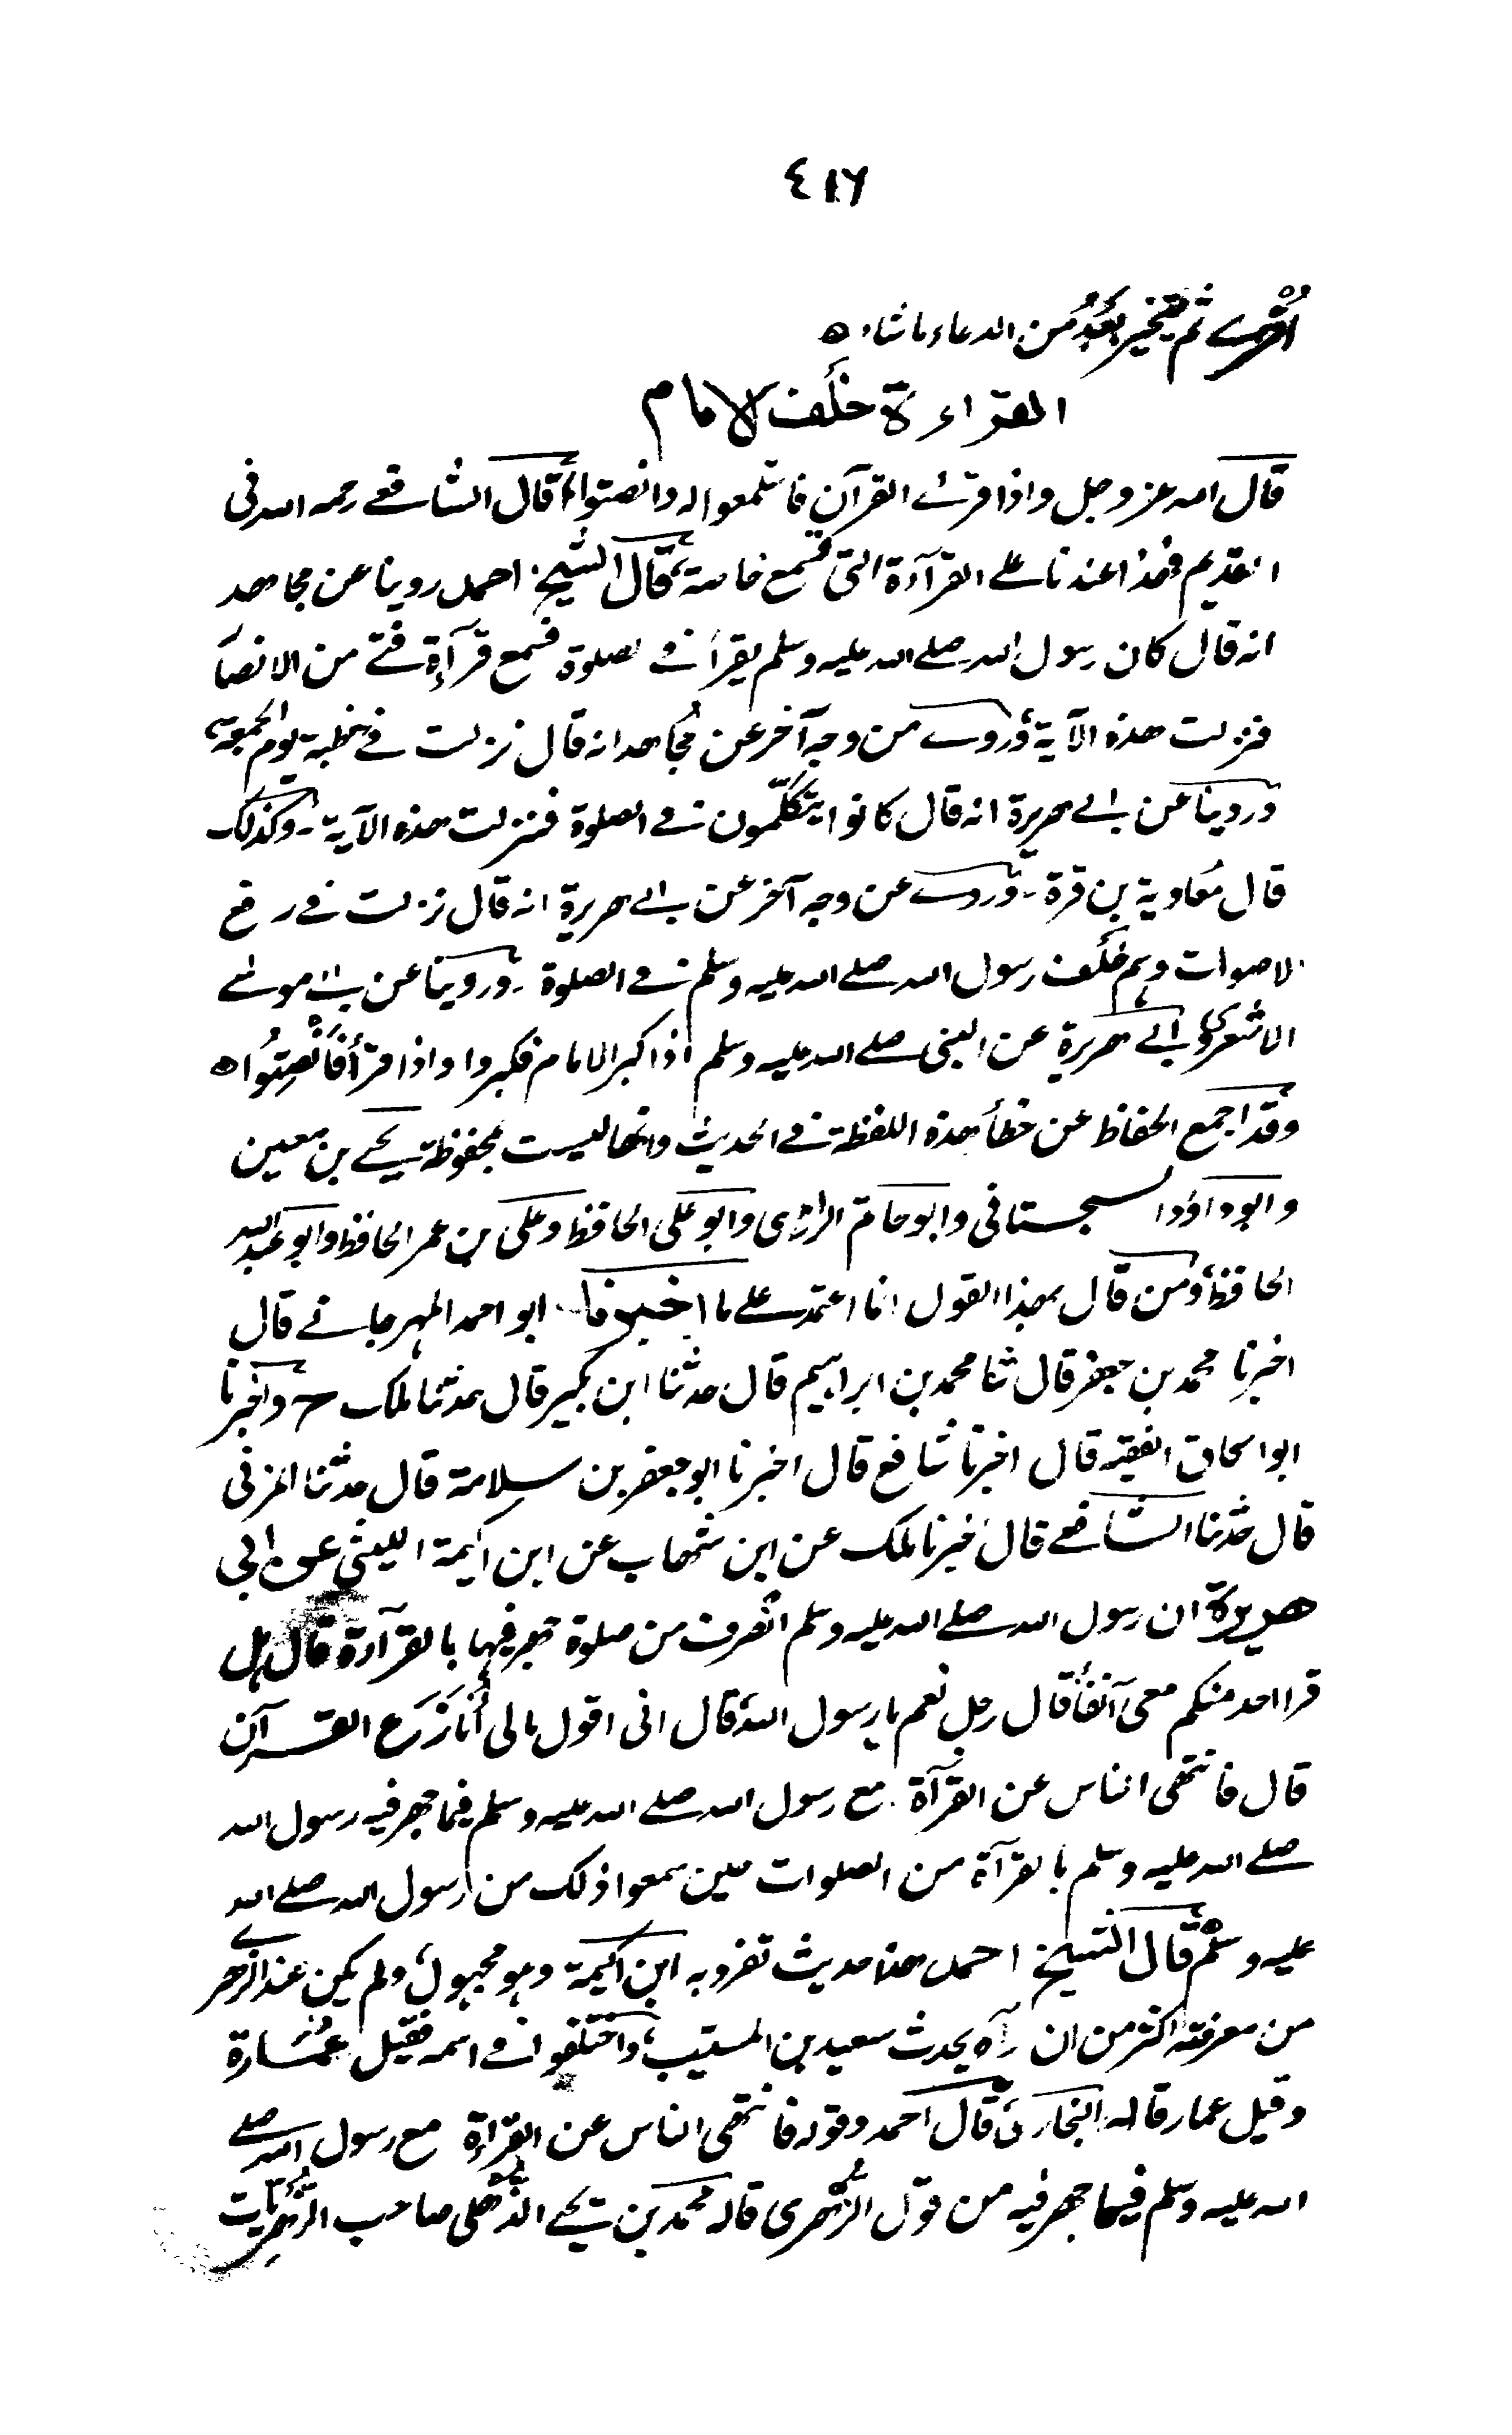 ٤١٦
أخرى ثم يتخير بعدُ من الدعاء ما شاء ه
القراءة خلف الامام
قال الله عز وجل واذا قرئ القرآن فاستمعوا له وانصتوا، قال الشافعى رحمه الله فى
القديم فهذا عندنا على القرآءة التى تسمع خاصة، قال الشيخ احمد روينا عن مجاهد
انه قال كان رسول الله صلى الله عليه وسلم يقرأ فى الصلوة فسمع قرآءة فتى من الانصار
فنزلت هذه الآية، وروى من وجه آخر عن مجاهد انه قال نزلت فى خطبة يوم الجمعة،
وروينا عن ابى هريرة انه قال كانوا يتكلّمون فى الصلوة فنزلت هذه الآية ـ وكذلك
قال معاوية بن قرة ـ وروى عن وجه آخر عن ابى هريرة انه قال نزلت فى رفع
الاصوات وهم خلف رسول الله صلى الله عليه وسلم فى الصلوة ـ وروينا عن ابى موسى
الاشعرى وابى هريرة عن النبى صلى الله عليه وسلم اذا كبر الامام فكبروا واذا قرأ فَأَنْصِتُوا ه
وقد اجمع الحفاظ عن خطأ هذه اللفظة فى الحديث وانها ليست بمحفوظة يحيى بن معين
وابو داؤد السجستانى وابو حاتم الرازى وابو على الحافظ وعلى بن عمر الحافظ وابو عبد الله
الحافظ، ومن قال بهذا القول انما اعتمد على ما اخبرنا ابو احمد المهرجانى قال
اخبرنا محمد بن جعفر قال ثنا محمد بن ابراهيم قال حدثنا ابن بكير قال حدثنا ملك ح واخبرنا
ابو اسحاق الفقيه قال اخبرنا شافع قال اخبرنا ابو جعفر بن سلامة قال حدثنا المزنى
قال حدثنا الشافعى قال اخبرنا ملك عن ابن شهاب عن ابن اكيمة الليثى عن ابى
هريرة ان رسول الله صلى الله عليه وسلم انصرف من صلوة جهر فيها بالقرآءة قال هل
قرا احد منكم معى آنفا، قال رجل نعم يا رسول الله، قال انى اقول مالى أُنَازَع القرآن
قال فانتهى الناس عن القرآة مع رسول الله صلى الله عليه وسلم فيما جهر فيه رسول الله
صلى الله عليه وسلم بالقرآة من الصلوات حين سمعوا ذلك من رسول الله صلى الله
عليه وسلم، قال الشيخ احمد هذا حديث تفرد به ابن اكيمة وهو مجهول، ولم يكن عند الزهرى
من معرفته اكثر من ان رآه يحدث سعيد بن المسيب، واختلفوا فى اسمه فقيل عُمَارة
وقيل عمار قاله البخارى، قال احمد وقوله فانتهى الناس عن القراءة مع رسول الله صلى
الله عليه وسلم فيما جهر فيه من قول الزُّهرى قاله محمد بن يحيى الذُّهلى صاحب الزُّهريات